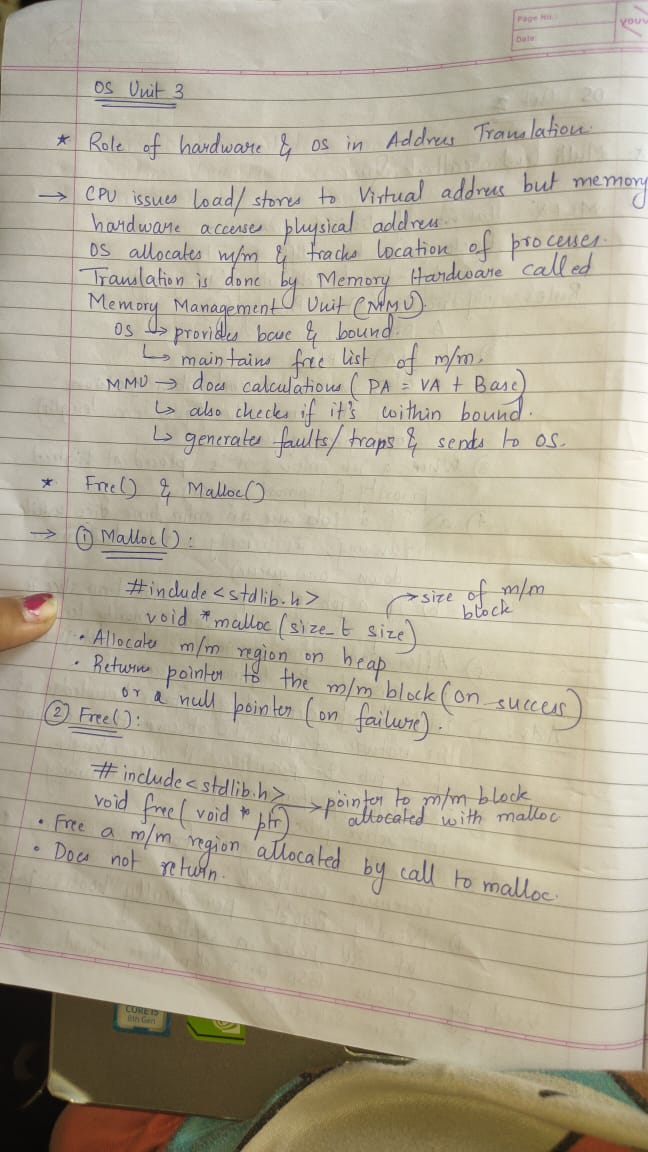 Page No.:
Date:
YOUV
OS Unit 3
* Role of hardware & OS in Address Translation.
→ CPU issues load/stores to Virtual address but memory
hardware accesses physical address.
OS allocates m/m & tracks location of processes.
Translation is done by Memory Hardware called
Memory Management Unit (MMU)
OS ↳ provides base & bound.
↳ maintains free list of m/m.
MMU → does calculations (PA = VA + Base)
↳ also checks if it's within bound.
↳ generates faults/traps & sends to OS.
* Free() & Malloc()
→ ① Malloc():
#include <stdlib.h> → size of m/m
void *malloc (size_t size) block
• Allocates m/m region on heap
• Returns pointer to the m/m block (on success)
or a null pointer (on failure).
② Free():
#include <stdlib.h> → pointer to m/m block
void free( void * ptr) allocated with malloc
• Free a m/m region allocated by call to malloc.
• Does not return.
CORE i5
8th Gen